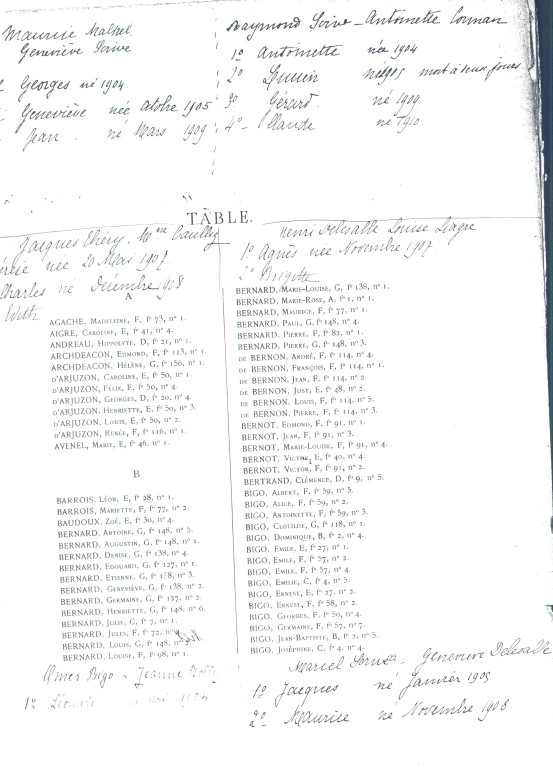 Maurice
Geneviève Scrive
Georges né 1904
Geneviève née octobre 1905
Jean. né Mars 1909
Raymond Scrive - Antoinette
1º Antoinette née 1904
2º Lucien né 1905 mort à deux jours
3º Gérard. né 1909
4º né 1910
TABLE.
Jacques Théry. Mme
née 20 Mai 1907
Charles né Décembre 1908
Edith
Henri Delesalle Louise
1º Agnès née Novembre 1907
2º Brigitte
A
AGACHE, Madeleine, F, fº 73, nº 1.
AIGRE, Caroline, E, fº 41, nº 4.
ANDREAU, Hippolyte, D, fº 21, nº 1.
ARCHDEACON, Edmond, F, fº 113, nº 1.
ARCHDEACON, Hélène, G, fº 156, nº 1.
D'ARJUZON, Caroline, E, fº 50, nº 1.
D'ARJUZON, Félix, E, fº 50, nº 4.
D'ARJUZON, Georges, D, fº 20, nº 4.
D'ARJUZON, Henriette, E, fº 50, nº 3.
D'ARJUZON, Louis, E, fº 50, nº 2.
D'ARJUZON, Renée, F, fº 116, nº 1.
AVENEL, Marie, E, fº 46, nº 1.
B
BARROIS, Léon, E, fº 28, nº 1.
BARROIS, Mariette, F, fº 77, nº 2.
BAUDOUX, Zoé, E, fº 30, nº 4.
BERNARD, Antoine, G, fº 148, nº 5.
BERNARD, Augustin, G, fº 148, nº 1.
BERNARD, Denise, G, fº 138, nº 4.
BERNARD, Edouard, G, fº 127, nº 1.
BERNARD, Etienne, G, fº 138, nº 3.
BERNARD, Geneviève, G, fº 138, nº 2.
BERNARD, Germaine, G, fº 127, nº 2.
BERNARD, Henriette, G, fº 148, nº 6.
BERNARD, Julie, C, fº 7, nº 1.
BERNARD, Jules, F, fº 72, nº
BERNARD, Louis, G, fº 148, nº
BERNARD, Louise, F, fº 98, nº 1.
BERNARD, Marie-Louise, G, fº 138, nº 1.
BERNARD, Marie-Rose, A, fº 1, nº 1.
BERNARD, Maurice, F, fº 77, nº 1.
BERNARD, Paul, G, fº 148, nº 4.
BERNARD, Pierre, F, fº 82, nº 1.
BERNARD, Pierre, G, fº 148, nº 3.
DE BERNON, André, F, fº 114, nº 4.
DE BERNON, François, F, fº 114, nº 1.
DE BERNON, Jean, F, fº 114, nº 2.
DE BERNON, Just, E, fº 48, nº 2.
DE BERNON, Louis, F, fº 114, nº 5.
DE BERNON, Pierre, F, fº 114, nº 3.
BERNOT, Edmond, F, fº 91, nº 1.
BERNOT, Jean, F, fº 91, nº 3.
BERNOT, Marie-Louise, F, fº 91, nº 4.
BERNOT, Victor, E, fº 40, nº 4.
BERNOT, Victor, F, fº 91, nº 2.
BERTRAND, Clémence, D, fº 9, nº 5.
BIGO, Albert, F, fº 59, nº 5.
BIGO, Alice, F, fº 59, nº 2.
BIGO, Antoinette, F, fº 59, nº 3.
BIGO, Clotilde, G, fº 118, nº 1.
BIGO, Dominique, B, fº 2, nº 4.
BIGO, Emile, E, fº 27, nº 1.
BIGO, Emile, F, fº 57, nº 2.
BIGO, Emile, F, fº 57, nº 4.
BIGO, Emilie, C, fº 4, nº 5.
BIGO, Ernest, E, fº 27, nº 2.
BIGO, Ernest, F, fº 58, nº 2.
BIGO, Georges, F, fº 59, nº 4.
BIGO, Germaine, F, fº 57, nº 7.
BIGO, Jean-Baptiste, B, fº 2, nº 5.
BIGO, Joséphine, C, fº 4, nº 4.
Omer Bigo - Jeanne
1º 1904
Marcel - Geneviève Delesalle
1º Jacques né Janvier 1905
2º Maurice né Novembre 1908